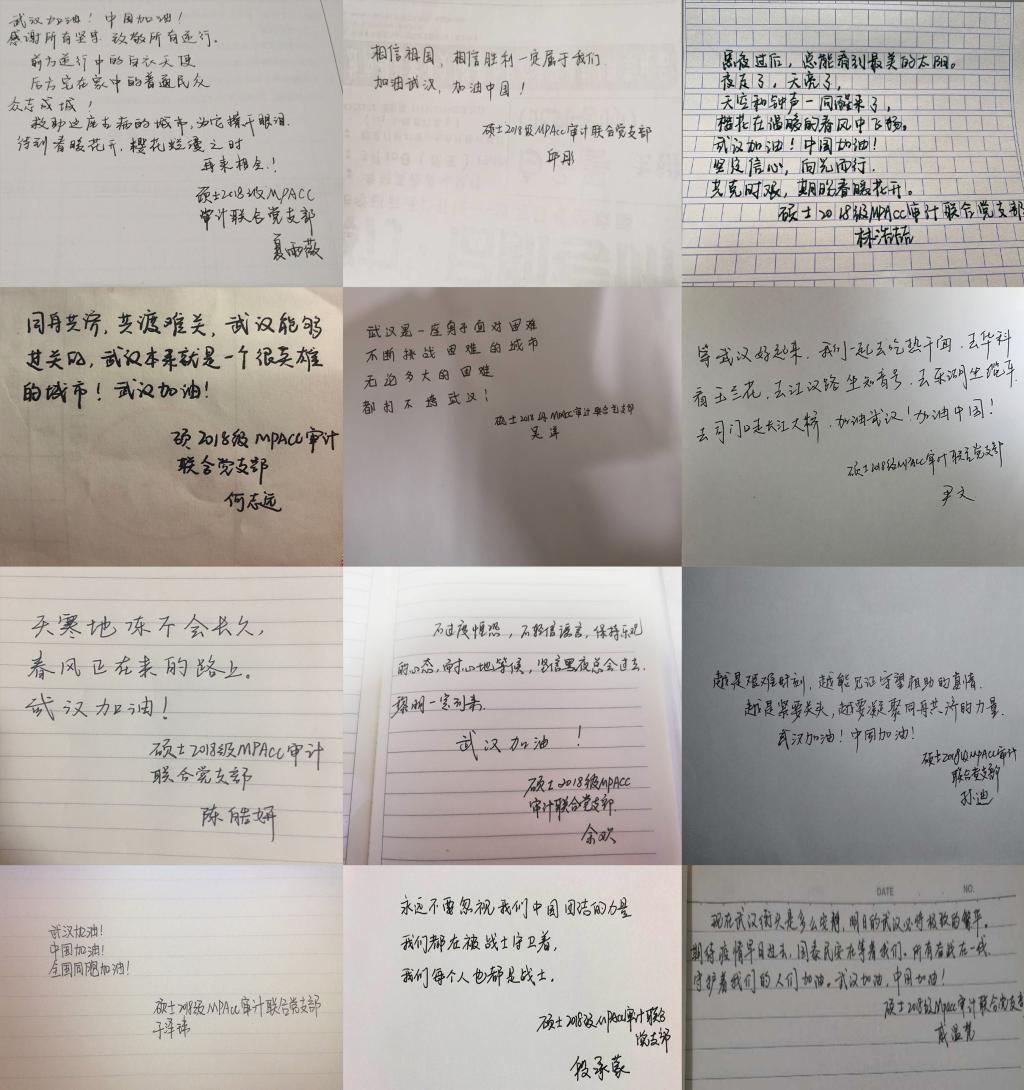 武汉加油！中国加油！
感谢所有坚守 致敬所有逆行。
前方逆行中的白衣天使
后方宅在家中的普通民众
众志成城！
救助这座生病的城市，为它擦干眼泪。
待到春暖花开，樱花烂漫之时
再来相会！
硕士2018级MPACC
审计联合党支部
夏雨薇
相信祖国，相信胜利一定属于我们.
加油武汉，加油中国！
硕士2018级MPACC审计联合党支部
邱彤
黑夜过后，总能看到最美的太阳。
夜走了，天亮了，
天空和钟声一同醒来了，
樱花在温暖的春风中飞扬。
武汉加油！中国加油！
坚定信心，向光而行.
共克时艰，期盼春暖花开。
硕士2018级MPACC审计联合党支部
林浩喆
同舟共济，共渡难关，武汉能够
过关的，武汉本来就是一个很英雄
的城市！武汉加油！
硕2018级MPACC审计
联合党支部
何志远
武汉是一座勇于面对困难
不断挑战困难的城市
无论多大的困难
都打不垮武汉！
硕士2018级MPACC审计联合党支部
吴洋
等武汉好起来，我们一起去吃热干面，去华科
看玉兰花，去江汉路坐知音号，去东湖坐缆车
去司门口走长江大桥，加油武汉！加油中国！
硕士2018级MPACC审计联合党支部
尹文
天寒地冻不会长久，
春风正在来的路上。
武汉加油！
硕士2018级MPACC审计
联合党支部
陈皓妍
不过度惶恐，不轻信谣言，保持乐观
的心态，耐心地等候，坚信黑夜总会过去，
黎明一定到来.
武汉加油！
硕士2018级MPACC
审计联合党支部.
余欢
越是艰难时刻，越能见证守望相助的真情.
越是紧要关头，越要凝聚同舟共济的力量.
武汉加油！中国加油！
硕士2018级MPACC审计
联合党支部
孙迪
武汉加油！
中国加油！
全国同胞加油！
硕士2018级MPACC审计联合党支部
于泽玮
永远不要忽视我们中国团结的力量
我们都在被战士守卫着，
我们每个人也都是战士.
硕士2018级MPACC审计联合
党支部
段承蒙
DATE . . NO.
现在武汉街头是多么安静，明日的武汉必将极致的繁华。
期待疫情早日过去，国泰民安在等着我们。所有奋战在一线
守护着我们的人们加油。武汉加油，中国加油！
硕士2018级MPACC审计联合党支部